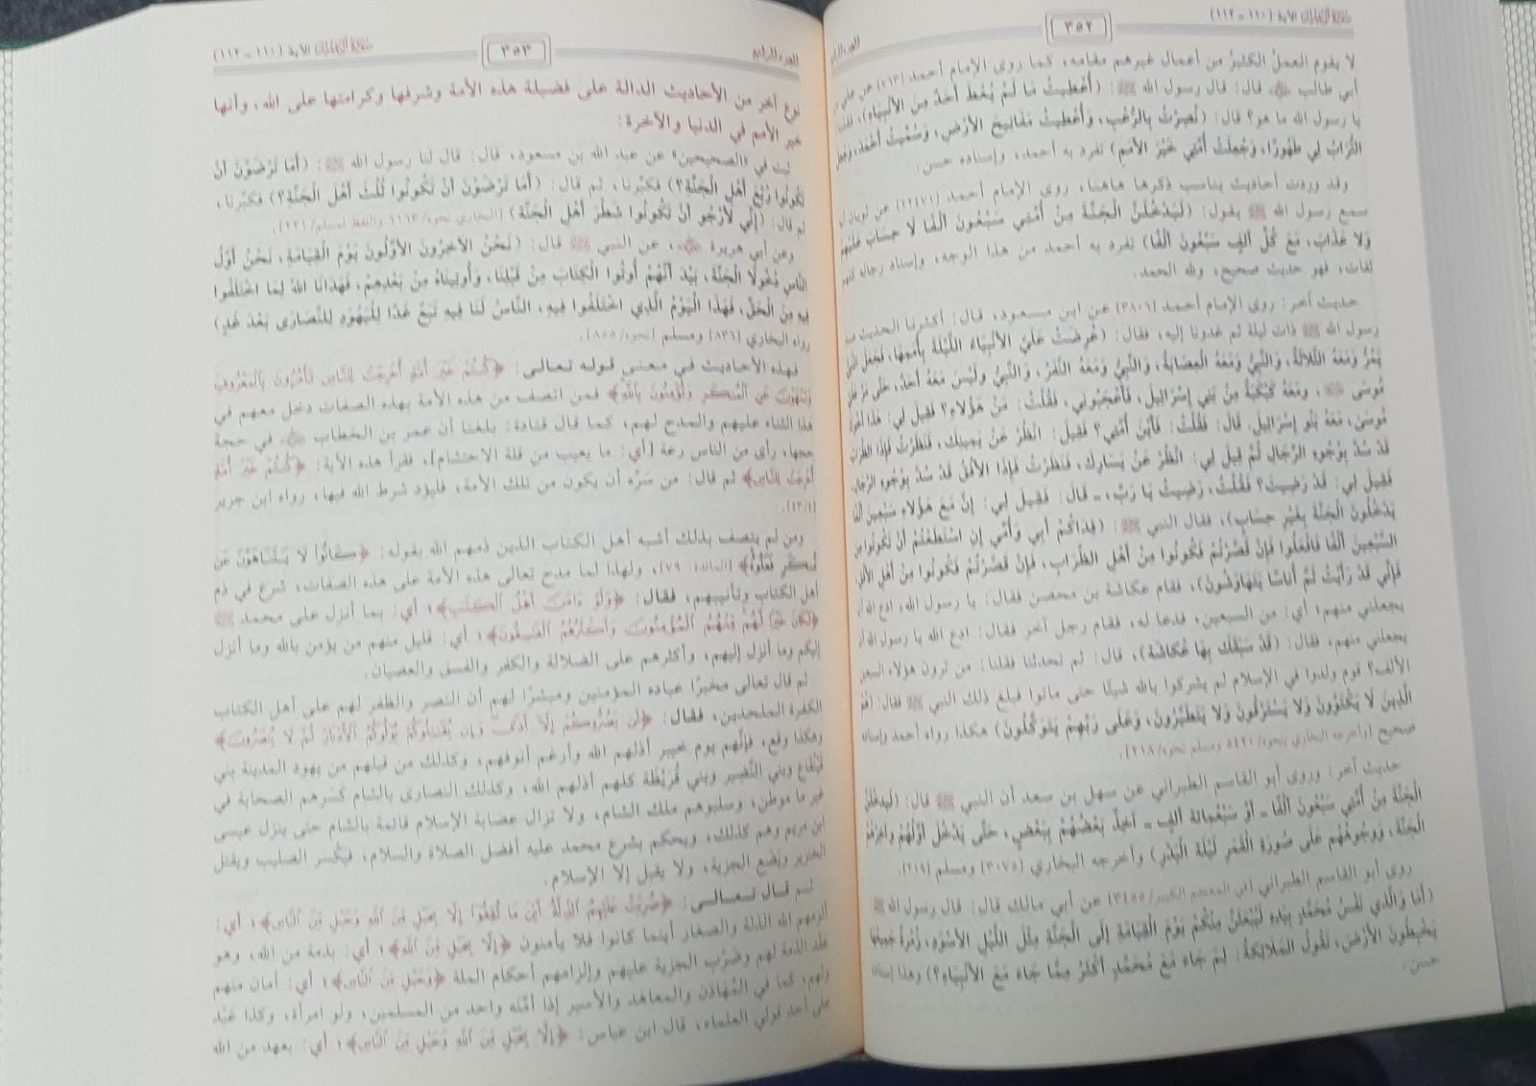 سورة آل عمران الآية (١١٠ - ١١٢)
٣٥٢
الجزء الرابع
لا يقوم العملُ الكثيرُ من أعمال غيرهم مقامه، كما روى الإمام أحمد (٧٦٣) عن علي بن
أبي طالب ﷺ قال: قال رسول الله ﷺ: (أُعْطِيتُ مَا لَمْ يُعْطَ أَحَدٌ مِنَ الأَنْبِيَاءِ)، فقلنا
يا رسول الله ما هو؟ قال: (نُصِرْتُ بِالرُّعْبِ، وَأُعْطِيتُ مَفَاتِيحَ الأَرْضِ، وَسُمِّيتُ أَحْمَدَ، وَجُعِلَ
التُّرَابُ لِي طَهُورًا، وَجُعِلَتْ أُمَّتِي خَيْرَ الأُمَمِ) تفرد به أحمد، وإسناده حسن.
وقد وردت أحاديث يناسب ذكرها هاهنا، روى الإمام أحمد (٢٢٤٧١) عن ثوبان
سمع رسول الله ﷺ يقول: (لَيَدْخُلَنَّ الْجَنَّةَ مِنْ أُمَّتِي سَبْعُونَ أَلْفًا لَا حِسَابَ عَلَيْهِمْ
وَلَا عَذَابَ، مَعَ كُلِّ أَلْفٍ سَبْعُونَ أَلْفًا) تفرد به أحمد من هذا الوجه، وإسناد رجاله كلهم
ثقات، فهو حديث صحيح، ولله الحمد.
حديث آخر: روى الإمام أحمد (٣٨٠٦) عن ابن مسعود، قال: أكثرنا الحديث عند
رسول الله ﷺ ذات ليلة ثم غدونا إليه، فقال: (عُرِضَتْ عَلَيَّ الأَنْبِيَاءُ اللَّيْلَةَ بِأُمَمِهَا، فَجَعَلَ النَّبِيُّ
يَمُرُّ وَمَعَهُ الثَّلَاثَةُ، وَالنَّبِيُّ وَمَعَهُ الْعِصَابَةُ، وَالنَّبِيُّ وَمَعَهُ النَّفَرُ، وَالنَّبِيُّ وَلَيْسَ مَعَهُ أَحَدٌ، حَتَّى مَرَّ عَلَيَّ
مُوسَى، وَمَعَهُ كَبْكَبَةٌ مِنْ بَنِي إِسْرَائِيلَ، فَأَعْجَبُونِي، فَقُلْتُ: مَنْ هَؤُلَاءِ؟ فَقِيلَ لِي: هَذَا أَخُوكَ
مُوسَى، مَعَهُ بَنُو إِسْرَائِيلَ. قَالَ: فَقُلْتُ: فَأَيْنَ أُمَّتِي؟ فَقِيلَ: انْظُرْ عَنْ يَمِينِكَ، فَنَظَرْتُ فَإِذَا الظِّرَابُ
قَدْ سُدَّ بِوُجُوهِ الرِّجَالِ ثُمَّ قِيلَ لِي: انْظُرْ عَنْ يَسَارِكَ، فَنَظَرْتُ فَإِذَا الأُفُقُ قَدْ سُدَّ بِوُجُوهِ الرِّجَالِ
فَقِيلَ لِي: قَدْ رَضِيتَ؟ فَقُلْتُ، رَضِيتُ يَا رَبِّ، - قَالَ: فَقِيلَ لِي: إِنَّ مَعَ هَؤُلَاءِ سَبْعِينَ أَلْفًا
يَدْخُلُونَ الْجَنَّةَ بِغَيْرِ حِسَابٍ)، فقال النبي ﷺ: (فِدَاكُمْ أَبِي وَأُمِّي إِنِ اسْتَطَعْتُمْ أَنْ تَكُونُوا مِنَ
السَّبْعِينَ أَلْفًا فَافْعَلُوا فَإِنْ قَصَّرْتُمْ فَكُونُوا مِنْ أَهْلِ الظِّرَابِ، فَإِنْ قَصَّرْتُمْ فَكُونُوا مِنْ أَهْلِ الأُفُقِ
فَإِنِّي قَدْ رَأَيْتُ ثَمَّ أُنَاسًا يَتَهَاوَشُونَ)، فقام عكاشة بن محصن فقال: يا رسول الله، ادع الله أن
يجعلني منهم؛ أي: من السبعين، فدعا له، فقام رجل آخر فقال: ادع الله يا رسول الله أن
يجعلني منهم، فقال: (قَدْ سَبَقَكَ بِهَا عُكَاشَةُ)، قال: ثم تحدثنا فقلنا: من ترون هؤلاء السبعين
الألف؟ قوم ولدوا في الإسلام لم يشركوا بالله شيئًا حتى ماتوا فبلغ ذلك النبي ﷺ فقال: (هُمُ
الَّذِينَ لَا يَكْتَوُونَ وَلَا يَسْتَرْقُونَ وَلَا يَتَطَيَّرُونَ، وَعَلَى رَبِّهِمْ يَتَوَكَّلُونَ) هكذا رواه أحمد وإسناده
صحيح [وأخرجه البخاري بنحوه/٥٤٢٠ ومسلم نحوه/٢١٨].
حديث آخر: وروى أبو القاسم الطبراني عن سهل بن سعد أن النبي ﷺ قال: (لَيَدْخُلَنَّ
الْجَنَّةَ مِنْ أُمَّتِي سَبْعُونَ أَلْفًا - أَوْ سَبْعُمِائَةِ أَلْفٍ - آخِذٌ بَعْضُهُمْ بِبَعْضٍ، حَتَّى يَدْخُلَ أَوَّلُهُمْ وَآخِرُهُمُ
الْجَنَّةَ، وَوُجُوهُهُمْ عَلَى صُورَةِ الْقَمَرِ لَيْلَةَ الْبَدْرِ) وأخرجه البخاري (٣٠٧٥) ومسلم (٢١٩).
روى أبو القاسم الطبراني [في المعجم الكبير/٣٤٥٥] عن أبي مالك قال: قال رسول الله ﷺ
(أَمَا وَالَّذِي نَفْسُ مُحَمَّدٍ بِيَدِهِ لَيُبْعَثَنَّ مِنْكُمْ يَوْمَ الْقِيَامَةِ إِلَى الْجَنَّةِ مِثْلُ اللَّيْلِ الأَسْوَدِ، زُمْرَةٌ جَمِيعُهَا
يَخْبِطُونَ الأَرْضَ، تَقُولُ الْمَلَائِكَةُ: لِمَ جَاءَ مَعَ مُحَمَّدٍ أَكْثَرُ مِمَّا جَاءَ مَعَ الأَنْبِيَاءِ؟) وهذا إسناد
حسن.
سورة آل عمران الآية (١١٠ - ١١٢)
٣٥٣
الجزء الرابع
نوع آخر من الأحاديث الدالة على فضيلة هذه الأمة وشرفها وكرامتها على الله، وأنها
خير الأمم في الدنيا والآخرة:
ثبت في «الصحيحين» عن عبد الله بن مسعود، قال: قال لنا رسول الله ﷺ: (أَمَا تَرْضَوْنَ أَنْ
تَكُونُوا رُبُعَ أَهْلِ الْجَنَّةِ؟) فكبَّرنا، ثم قال: (أَمَا تَرْضَوْنَ أَنْ تَكُونُوا ثُلُثَ أَهْلِ الْجَنَّةِ؟) فكبَّرنا،
ثم قال: (إِنِّي لأَرْجُو أَنْ تَكُونُوا شَطْرَ أَهْلِ الْجَنَّةِ) [البخاري نحوه/٦١٦٣ واللفظ لمسلم/٢٢١].
وعن أبي هريرة، عن النبي ﷺ قال: (نَحْنُ الآخِرُونَ الأَوَّلُونَ يَوْمَ الْقِيَامَةِ، نَحْنُ أَوَّلُ
النَّاسِ دُخُولًا الْجَنَّةَ، بَيْدَ أَنَّهُمْ أُوتُوا الْكِتَابَ مِنْ قَبْلِنَا، وَأُوتِينَاهُ مِنْ بَعْدِهِمْ، فَهَدَانَا اللهُ لِمَا اخْتَلَفُوا
فِيهِ مِنَ الْحَقِّ، فَهَذَا الْيَوْمُ الَّذِي اخْتَلَفُوا فِيهِ، النَّاسُ لَنَا فِيهِ تَبَعٌ غَدًا لِلْيَهُودِ لِلنَّصَارَى بَعْدَ غَدٍ)
رواه البخاري (٨٣٦) ومسلم [نحوه/٨٥٥].
فهذه الأحاديث في معنى قوله تعالى: ﴿كُنتُمْ خَيْرَ أُمَّةٍ أُخْرِجَتْ لِلنَّاسِ تَأْمُرُونَ بِالْمَعْرُوفِ
وَتَنْهَوْنَ عَنِ الْمُنكَرِ وَتُؤْمِنُونَ بِاللَّهِ﴾ فمن اتصف من هذه الأمة بهذه الصفات دخل معهم في
هذا الثناء عليهم والمدح لهم، كما قال قتادة: بلغنا أن عمر بن الخطاب في حجة
حجها، رأى من الناس رعة [أي: ما يعيب من قلة الاحتشام]، فقرأ هذه الآية: ﴿كُنتُمْ خَيْرَ أُمَّةٍ
أُخْرِجَتْ لِلنَّاسِ﴾ ثم قال: من سَرَّه أن يكون من تلك الأمة، فليؤد شرط الله فيها، رواه ابن جرير
(٤٣/٤).
ومن لم يتصف بذلك أشبه أهل الكتاب الذين ذمهم الله بقوله: ﴿كَانُوا لَا يَتَنَاهَوْنَ عَن
مُّنكَرٍ فَعَلُوهُ﴾ [المائدة: ٧٩]، ولهذا لما مدح تعالى هذه الأمة على هذه الصفات، شرع في ذم
أهل الكتاب وتأنيبهم، فقال: ﴿وَلَوْ ءَامَنَ أَهْلُ الْكِتَٰبِ﴾؛ أي: بما أنزل على محمد ﷺ
﴿لَكَانَ خَيْرًا لَّهُم مِّنْهُمُ الْمُؤْمِنُونَ وَأَكْثَرُهُمُ الْفَٰسِقُونَ﴾؛ أي: قليل منهم من يؤمن بالله وما أنزل
إليكم وما أنزل إليهم، وأكثرهم على الضلالة والكفر والفسق والعصيان.
ثم قال تعالى مخبرًا عباده المؤمنين ومبشرًا لهم أن النصر والظفر لهم على أهل الكتاب
الكفرة الملحدين، فقال: ﴿لَن يَضُرُّوكُمْ إِلَّا أَذًى وَإِن يُقَٰتِلُوكُمْ يُوَلُّوكُمُ الْأَدْبَارَ ثُمَّ لَا يُنصَرُونَ﴾
وهكذا وقع، فإنَّهم يوم خيبر أذلهم الله وأرغم أنوفهم، وكذلك من قبلهم من يهود المدينة بني
قَيْنُقَاع وبني النَّضِير وبني قُرَيْظَة كلهم أذلهم الله، وكذلك النصارى بالشام كَسَرهم الصحابة في
غير ما موطن، وسلبوهم ملك الشام، ولا تزال عصابة الإسلام قائمة بالشام حتى ينزل عيسى
ابن مريم وهم كذلك، ويحكم بشرع محمد عليه أفضل الصلاة والسلام، فيَكْسر الصليب ويقتل
الخنزير ويَضَع الجزية، ولا يقبل إلا الإسلام.
ثم قال تعالى: ﴿ضُرِبَتْ عَلَيْهِمُ الذِّلَّةُ أَيْنَ مَا ثُقِفُوا إِلَّا بِحَبْلٍ مِّنَ اللَّهِ وَحَبْلٍ مِّنَ النَّاسِ﴾؛ أي:
ألزمهم الله الذلة والصغار أينما كانوا فلا يأمنون ﴿إِلَّا بِحَبْلٍ مِّنَ اللَّهِ﴾؛ أي: بذمة من الله، وهو
عقد الذمة لهم وضَرْب الجزية عليهم وإلزامهم أحكام الملة ﴿وَحَبْلٍ مِّنَ النَّاسِ﴾؛ أي: أمان منهم
ولهم، كما في المُهَادَن والمعاهَد والأسير إذا أمَّنَه واحد من المسلمين، ولو امرأة، وكذا عَبْد
على أحد قولي العلماء، قال ابن عباس: ﴿إِلَّا بِحَبْلٍ مِّنَ اللَّهِ وَحَبْلٍ مِّنَ النَّاسِ﴾؛ أي: بعهد من الله